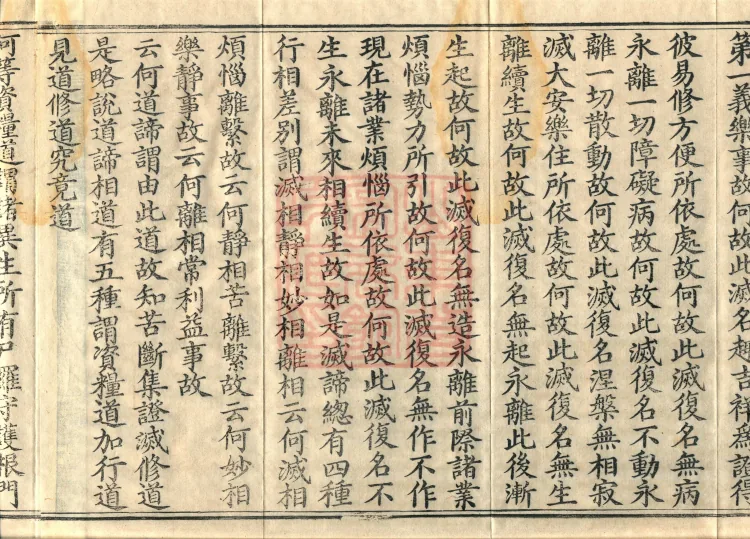 第一義樂事故何故此滅名趣吉祥為證得
彼易修方便所依處故何故此滅復名無病
永離一切障礙病故何故此滅復名不動永
離一切散動故何故此滅復名涅槃無相寂
滅大安樂住所依處故何故此滅復名無生
離續生故何故此滅復名無起永離此後漸
生起故何故此滅復名無造永離前際諸業
煩惱勢力所引故何故此滅復名無作不作
現在諸業煩惱所依處故何故此滅復名不
生永離未來相續生故如是滅諦總有四種
行相差別謂滅相靜相妙相離相云何滅相
煩惱離繫故云何靜相苦離繫故云何妙相
樂靜事故云何離相常利益事故
云何道諦謂由此道故知苦斷集證滅修道
是略說道諦相道有五種謂資糧道加行道
見道修道究竟道
何等資糧道謂諸異生所有尸羅守護根門